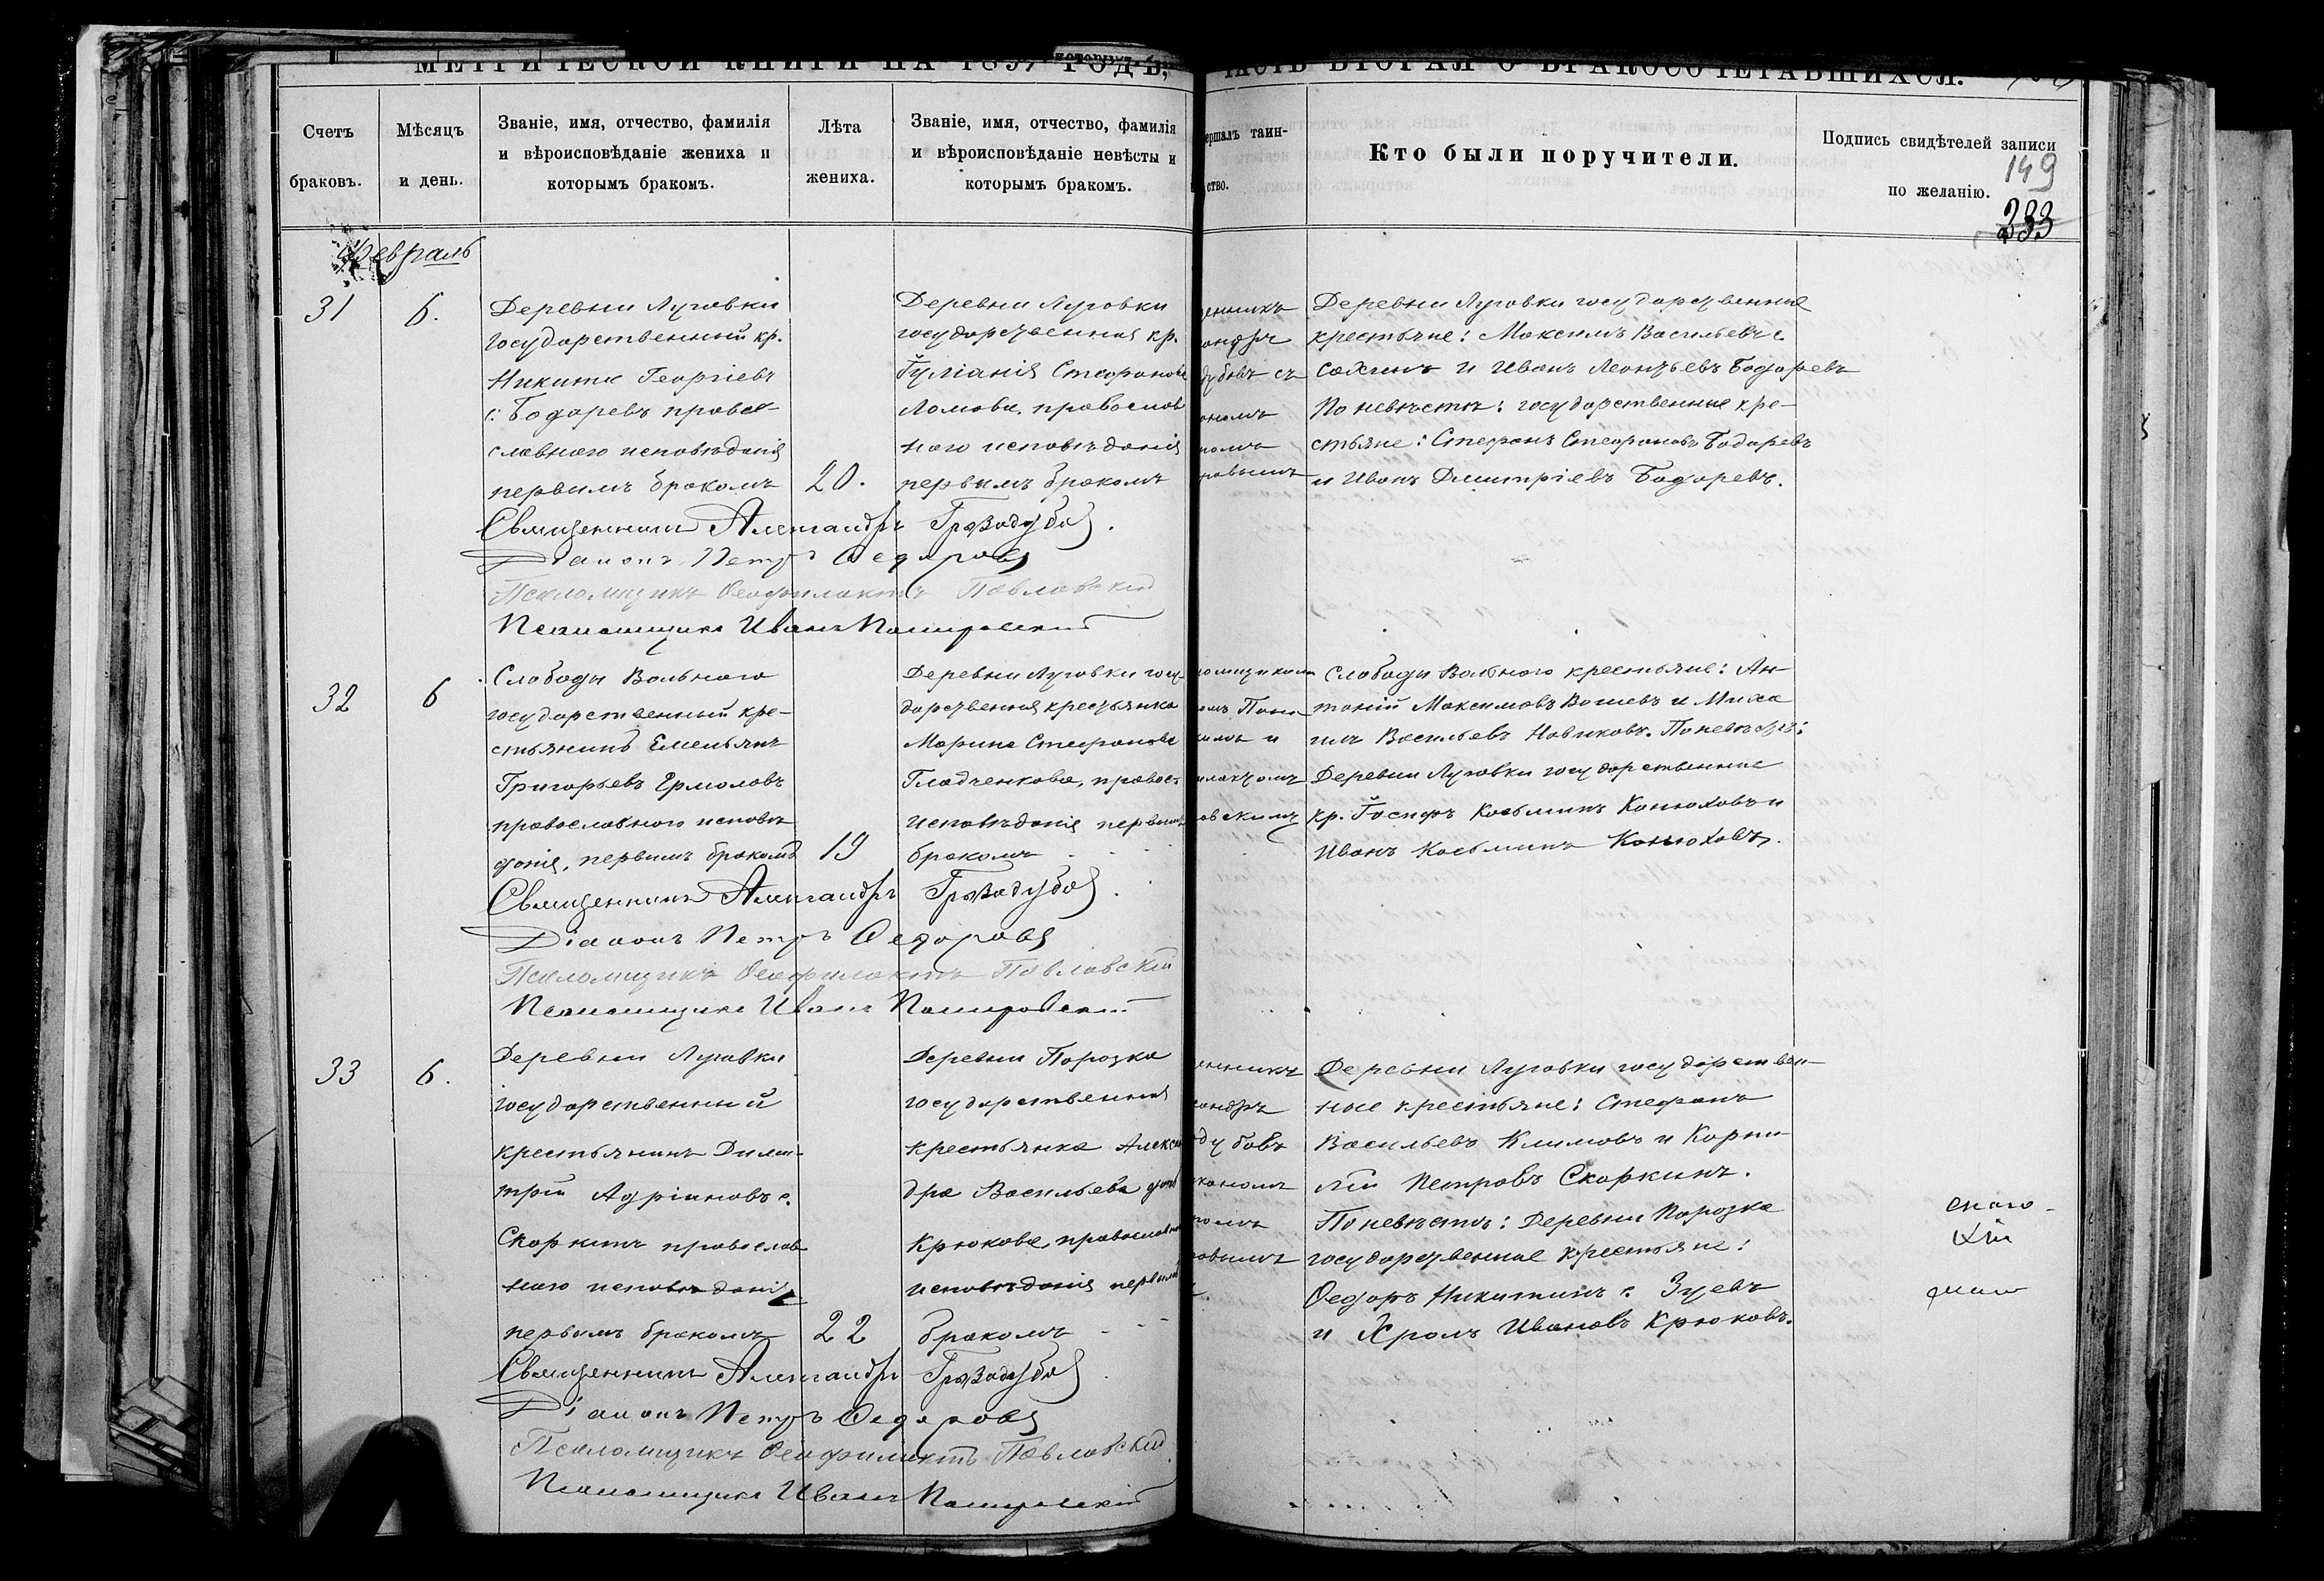 МЕТРИЧЕСКОЙ КНИГИ НА 1897 ГОДЪ,
ЧАСТЬ ВТОРАЯ О БРАКОСОЧЕТАВШИХСЯ.
Счетъ браковъ.
Мѣсяцъ и день.
Званіе, имя, отчество, фамилія
и вѣроисповѣданіе жениха и
которымъ бракомъ.
Лѣта
жениха.
Званіе, имя, отчество, фамилія
и вѣроисповѣданіе невѣсты и
которымъ бракомъ.
ершалъ таин-
ство.
Кто были поручители.
Подпись свидѣтелей записи
по желанію.
149
233
Февраль
31
6.
Деревни Луговки
государственный кр.
Никита Георгіевъ
с: Бодаревъ право-
славного исповѣданія
первымъ бракомъ
20.
Деревни Луговки
государственная кр.
Іуліанія Стефанова
Ломова, православ
ного исповѣданія
первымъ бракомъ
енникъ
андръ
дубовъ съ
ономъ
ромъ
ровымъ
Деревни Луговки государственные
крестьяне: Максимъ Васильевъ с.
и Иванъ Леонтьевъ Бодаревъ
По невѣстѣ: государственные кре-
стьяне: Стефанъ Стефановъ Бодаревъ
и Иванъ Димитріевъ Бодаревъ.
Священникъ Александръ Грозодубов
Діаконъ Петръ Ѳедоровъ
Псаломщикъ Ѳеофилактъ Павловскій
Псаломщикъ Иванъ
32
6
Слободы Вольного
государственный кре-
стьянинъ Емельянъ
Григорьевъ Ермоловъ
православного исповѣ
данія, первымъ бракомъ
19
Деревни Луговки госу-
дарственная крестьянка
Марина Стефанова
Гладченкова, правосл
исповѣданія первымъ
бракомъ
омщикомъ
комъ и
илактомъ
овскимъ
Слободы Вольного крестьяне: Ан-
тоній Максимовъ и Миха
илъ Васильевъ Новиковъ. По невѣстѣ:
Деревни Луговки государственные
кр. Іосифъ Косьминъ Конюховъ и
Иванъ Косьминъ Конюховъ.
Священникъ Александръ Грозодубов
Діаконъ Петръ Ѳедоровъ
Псаломщикъ Ѳеофилактъ Павловскій
Псаломщикъ Иванъ
33
6.
Деревни Луговки
государственный
крестьянинъ Дими-
трій Адріановъ с.
Скоркинъ православ
ного исповѣданія
первымъ бракомъ
22
Деревни Порозка
государственная
крестьянка Алексан
дра Васильева дочь
Крюкова, православн
исповѣданія первымъ
бракомъ
енникъ
сандръ
ду бовъ
кономъ
ромъ
ровымъ
Деревни Луговки государствен-
ные крестьяне: Стефанъ
Васильевъ Климовъ и Корни-
лій Петровъ Скоркинъ.
По невѣстѣ: Деревни Порозка
государственные крестьяне:
Ѳедоръ Никитинъ с. Зуевъ
и Хролъ Ивановъ Крюковъ.
Священникъ Александръ Грозодубов
Діаконъ Петръ Ѳедоровъ
Псаломщикъ Ѳеофилактъ Павловскій
Псаломщикъ Иванъ